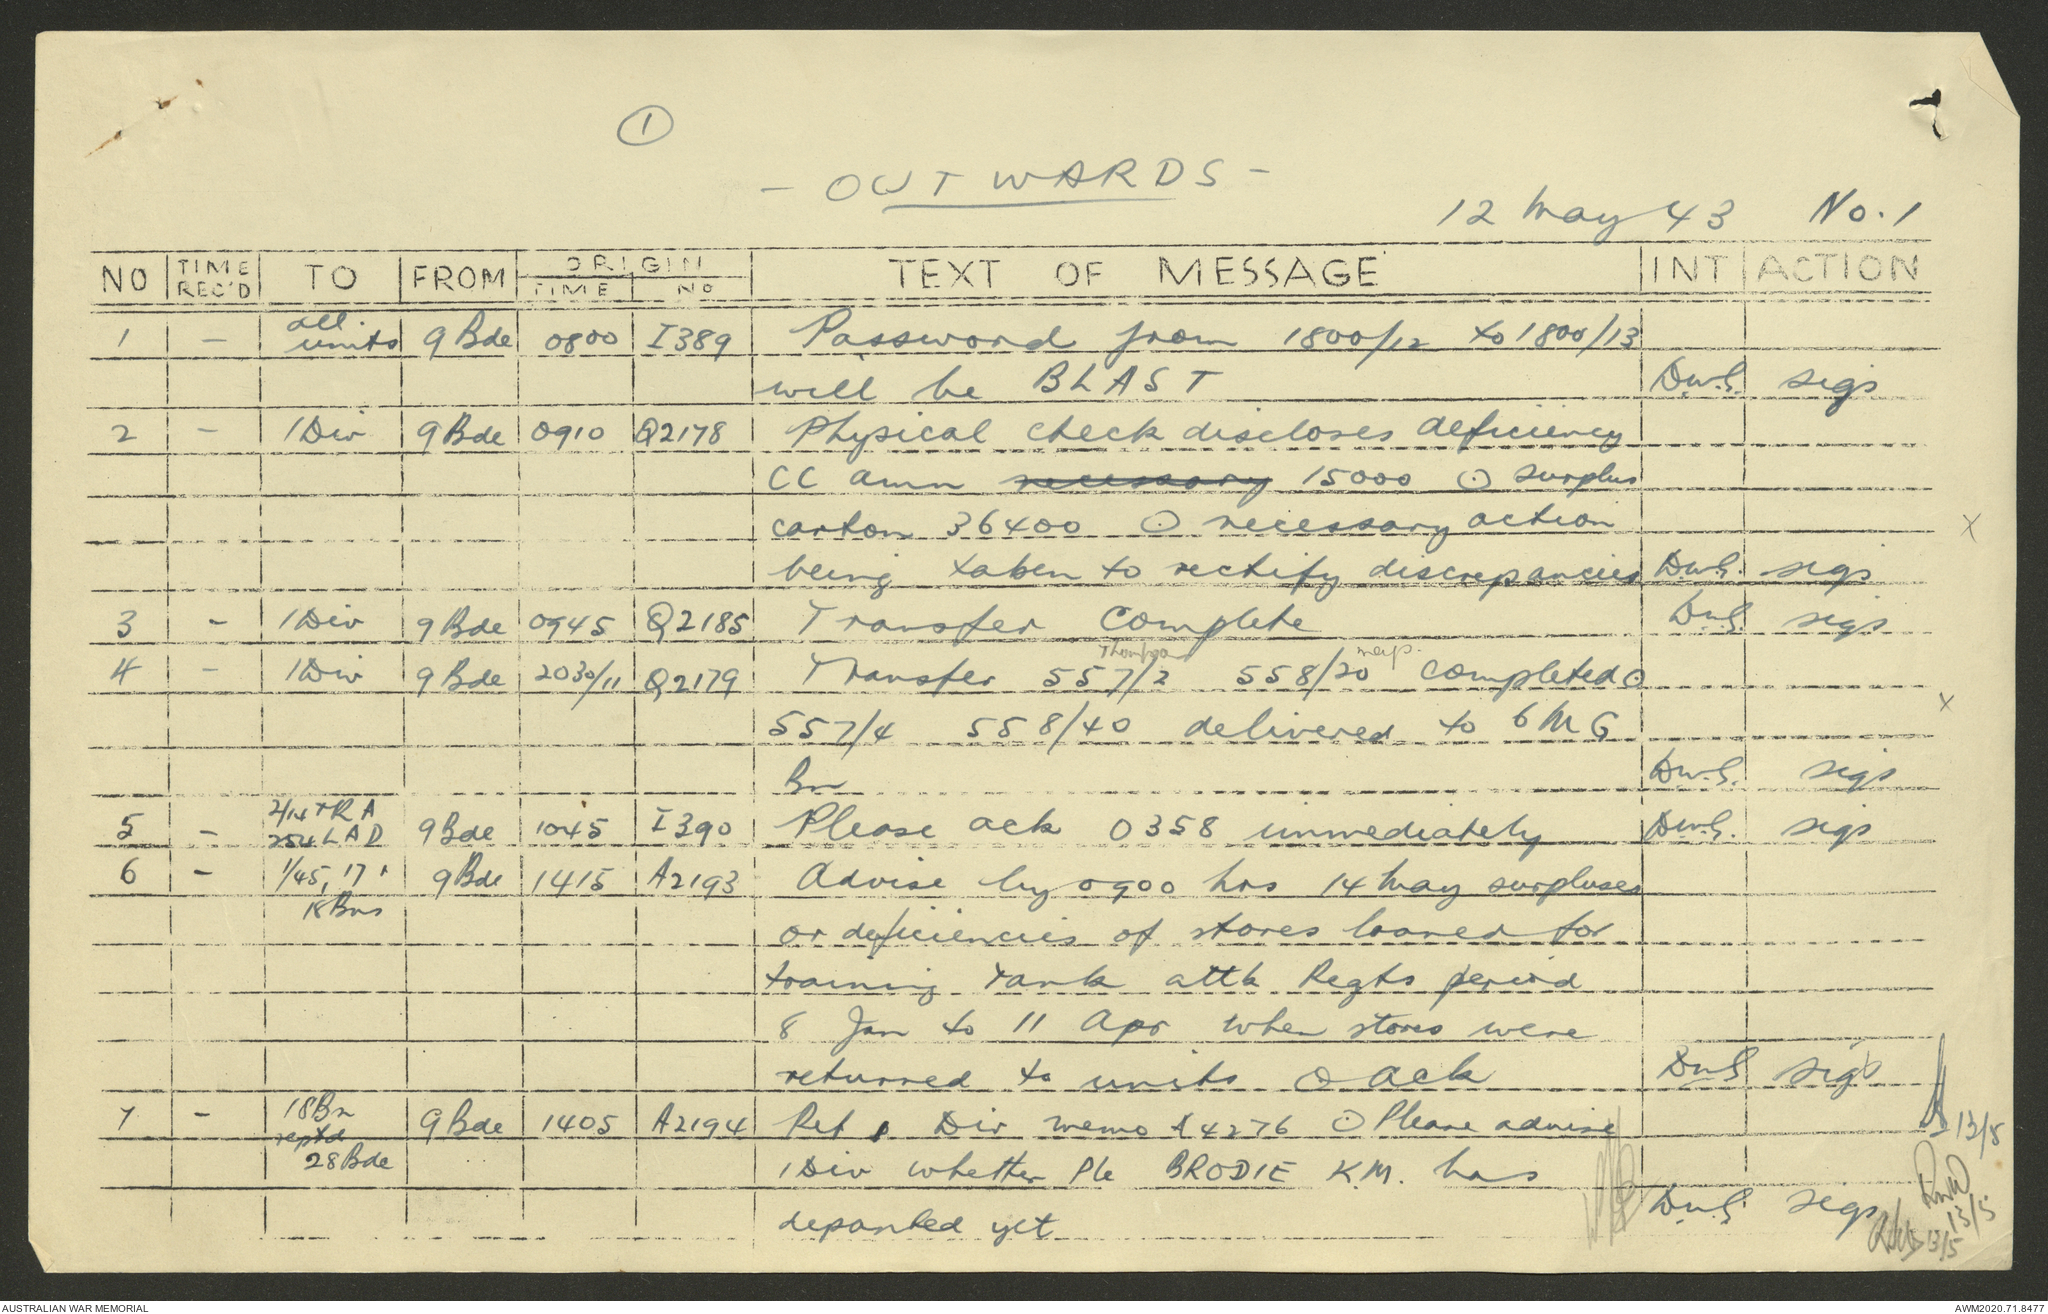 1
- OUTWARDS -
12 May 43 No. 1
NO TIME REC'D TO FROM ORIGIN TIME NO TEXT OF MESSAGE INT ACTION
1 - all units 9 Bde 0800 I389 Password from 1800/12 to 1800/13
will be BLAST D.W.G. sigs
2 - 1 Div 9 Bde 0910 Q2178 Physical check discloses deficiency
CC amn necessary 15000 ⊙ surplus
carton 36400 ⊙ necessary action
X
being taken to rectify discrepancies D.W.G. sigs
3 - 1 Div 9 Bde 0945 Q2185 Transfer complete D.W.G. sigs
Thompson
4 - 1 Div 9 Bde 2030/11 Q2179 Transfer 557/2 558/20 completed ⊙
X
557/4 558/40 delivered to 6 MG
Bn D.W.G. sigs
5 - 2/14 + RA 254 LAD 9 Bde 1045 I390 Please ack O358 immediately D.W.G. sigs
6 - 1/45, 17 + 18 Bns 9 Bde 1415 A2193 Advise by 0900 hrs 14 May surpluses
or deficiencies of stores loaned for
training Tank attk Regts period
8 Jan to 11 Apr when stores were
returned to units ⊙ ack D.W.G. sigs
7 - 18 Bn reptd 28 Bde 9 Bde 1405 A2194 Ref 1 Div memo A4276 ⊙ Please advise
13/5
1 Div whether Pte BRODIE K.M. has
departed yet D.W.G. sigs
13/5
13/5
AUSTRALIAN WAR MEMORIAL
AWM2020.71.8477